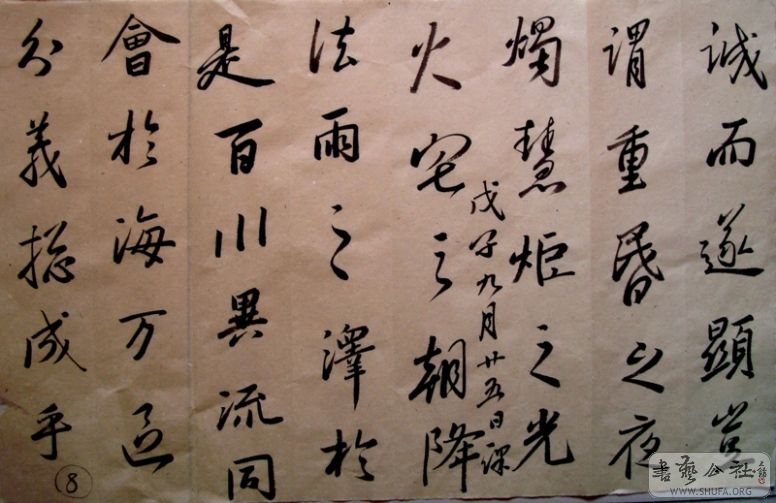 誠而遂顯豈
謂重昬之夜
燭慧炬之光
戊子九月廿五日課
火宅之朝降
法雨之澤於
是百川異流同
會於海万區
分義揔成乎
8
書藝公社
WWW.SHUFA.ORG